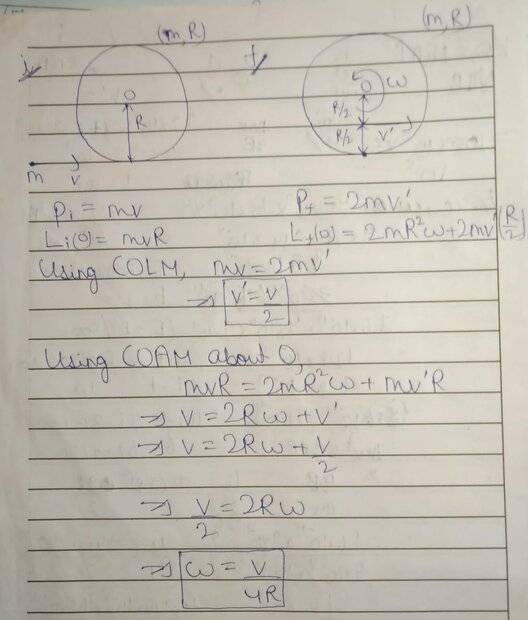 i (m,R) f (m,R)
O O ω
R R/2
R/2 v'
m v
Pi = mv Pf = 2mv'
Li(O) = mvR Lf(O) = 2mR²ω+2mv'(R/2)
Using COLM, mv = 2mv'
⇒ v' = v/2
Using COAM about O,
mvR = 2mR²ω + mv'R
⇒ v = 2Rω + v'
⇒ v = 2Rω + v/2
⇒ v/2 = 2Rω
⇒ ω = v/4R